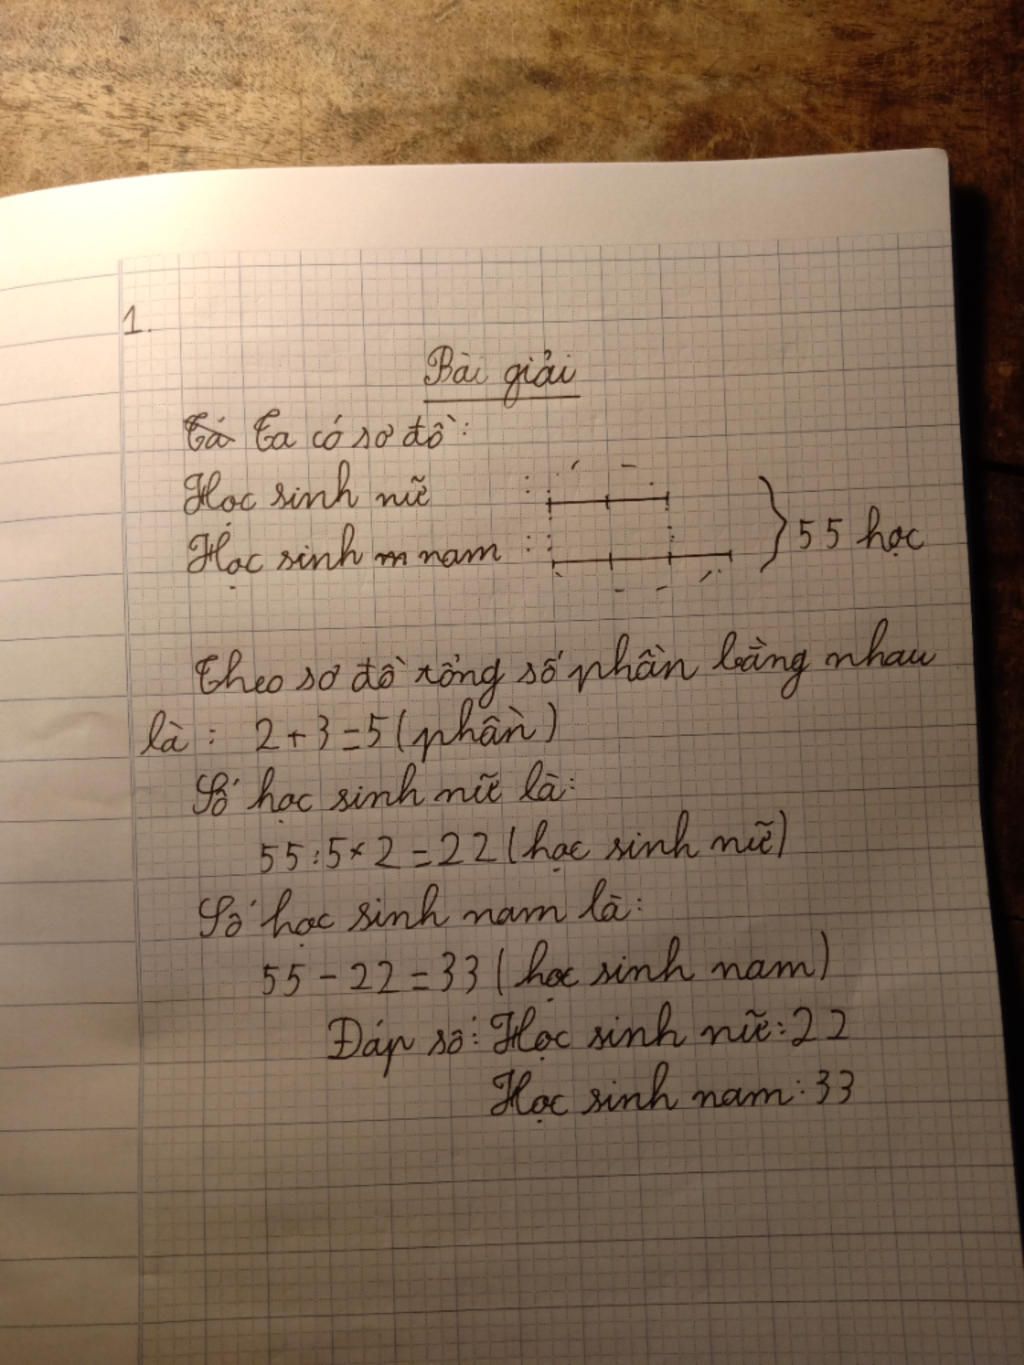 1.
Bài giải
Tá Ta có sơ đồ:
Học sinh nữ :
Học sinh m nam :
} 55 học
Theo sơ đồ tổng số phần bằng nhau
là: 2+3=5 (phần)
Số học sinh nữ là:
55:5×2=22 (học sinh nữ)
Số học sinh nam là:
55-22=33 (học sinh nam)
Đáp số: Học sinh nữ: 22
Học sinh nam: 33